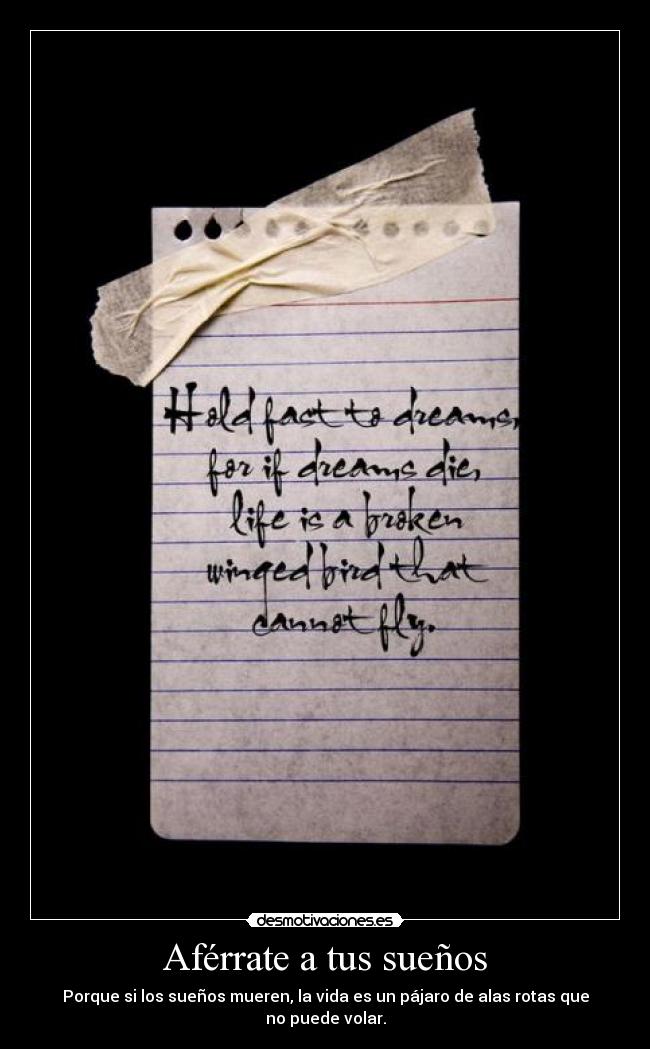 Hold fast to dreams,
for if dreams die,
life is a broken
winged bird that
cannot fly.
desmotivaciones.es
Aférrate a tus sueños
Porque si los sueños mueren, la vida es un pájaro de alas rotas que
no puede volar.